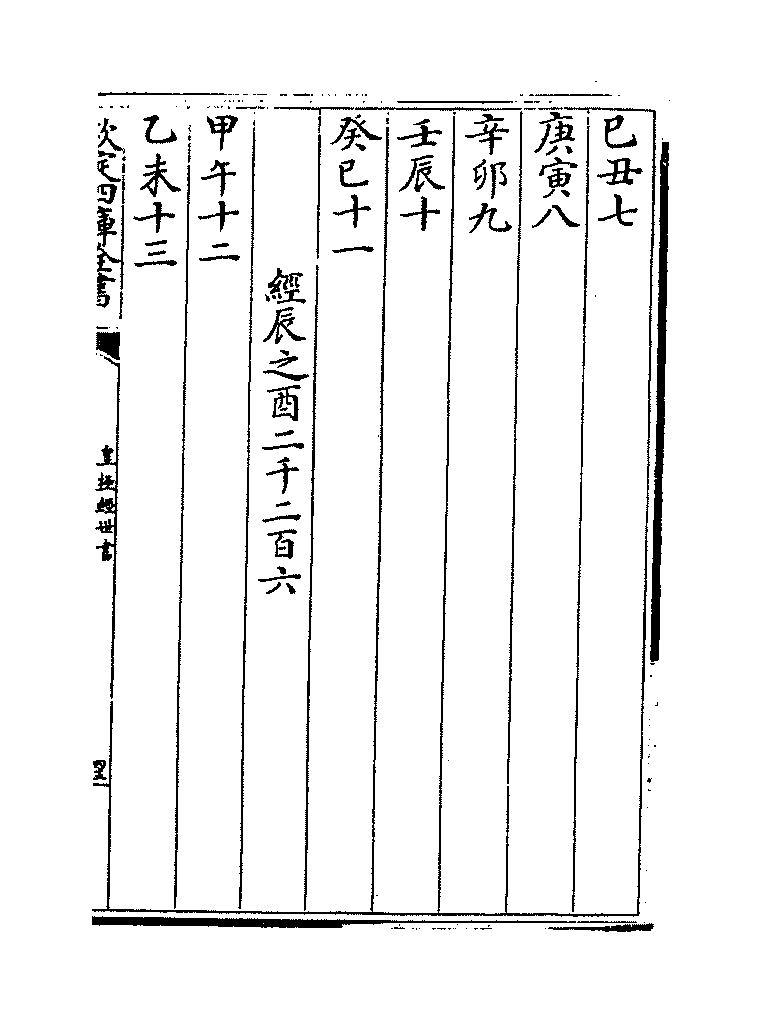 己丑七
庚寅八
辛卯九
壬辰十
癸巳十一
經辰之酉二千二百六
甲午十二
乙未十三
欽定四庫全書
皇極經世書